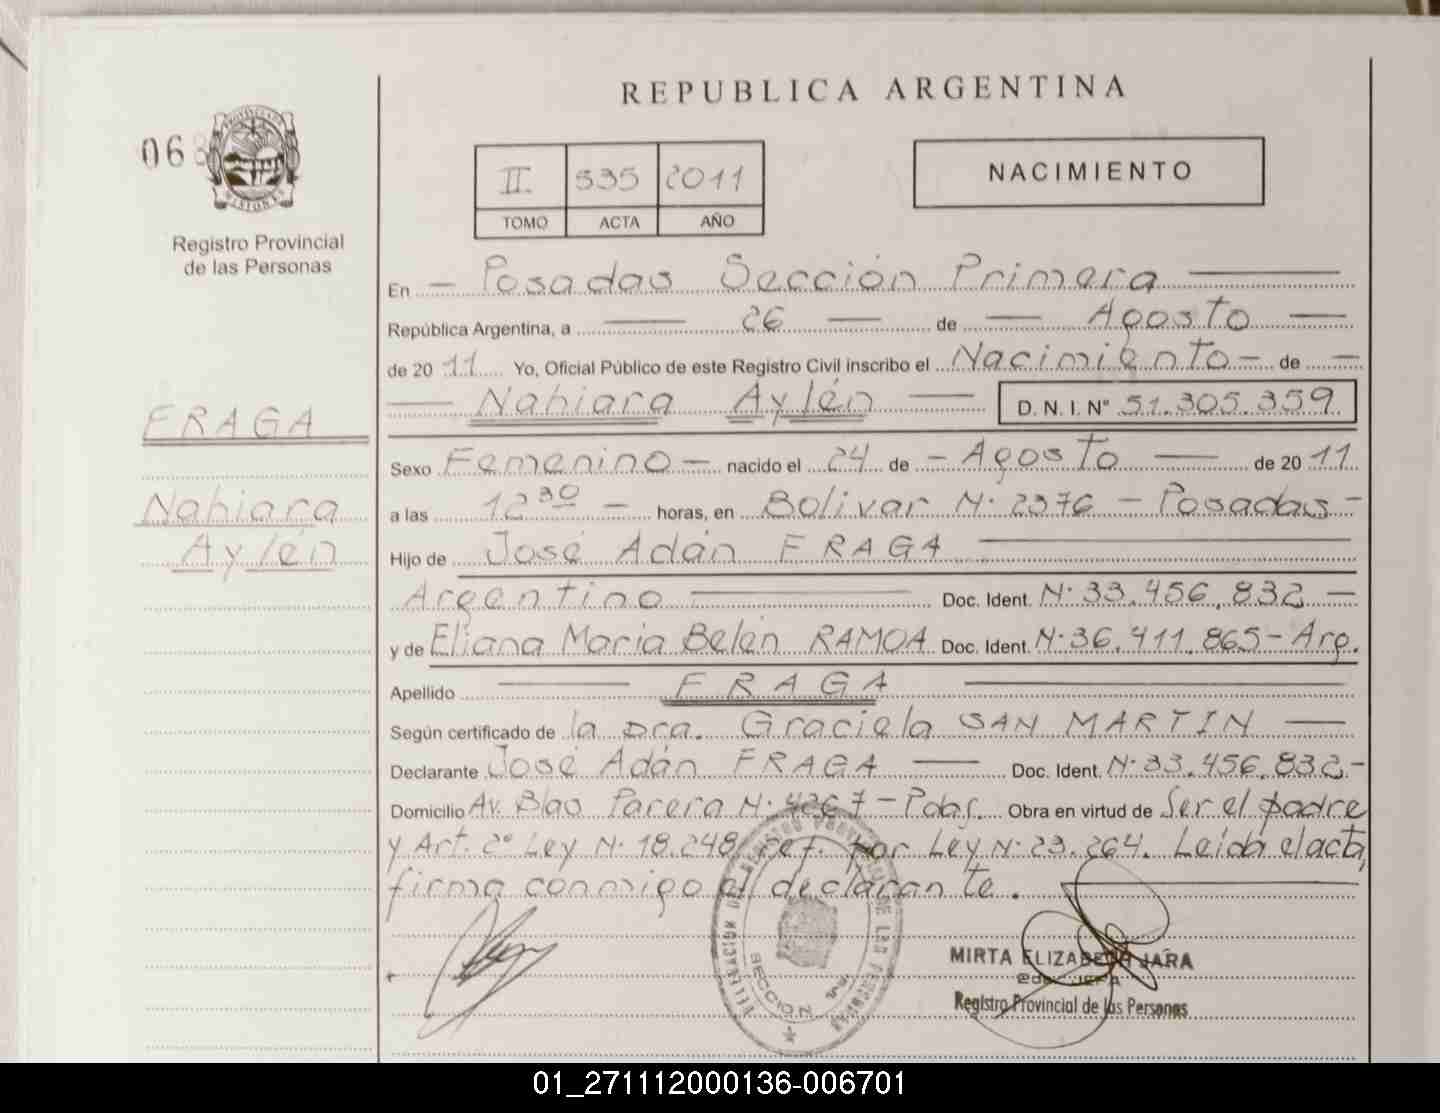 REPUBLICA ARGENTINA
06
PROVINCIA DE
MISIONES
Registro Provincial
de las Personas
II 535 2011
TOMO ACTA AÑO
NACIMIENTO
En — Posadas Sección Primera —
República Argentina, a — 26 — de — Agosto —
de 2011 Yo, Oficial Público de este Registro Civil inscribo el Nacimiento — de —
— Nahiara Aylén — D. N. I. N° 51.305.359
FRAGA
Nahiara
Aylén
Sexo Femenino — nacido el 24 de — Agosto — de 2011
a las 12 30 — horas, en Bolivar N· 2376 — Posadas —
Hijo de José Adán FRAGA —
Argentino — Doc. Ident. N· 33.456.832 —
y de Eliana Maria Belén RAMOA Doc. Ident. N· 36.411.865 - Arg.
Apellido — FRAGA —
Según certificado de la Dra. Graciela SAN MARTIN —
Declarante José Adán FRAGA — Doc. Ident. N· 33.456.832 -
Domicilio Av. Blas Parera N· 4367 - Pdas. Obra en virtud de Ser el padre
y Art. 2° Ley N· 18.248 ref. por Ley N· 23.264. Leída el acta,
firma conmigo el declarante. —
DELEGACION DEL REGISTRO PROVINCIAL DE LAS PERSONAS
SECCION
MIRTA ELIZABETH JARA
2da. JEFA
Registro Provincial de las Personas
01_271112000136-006701